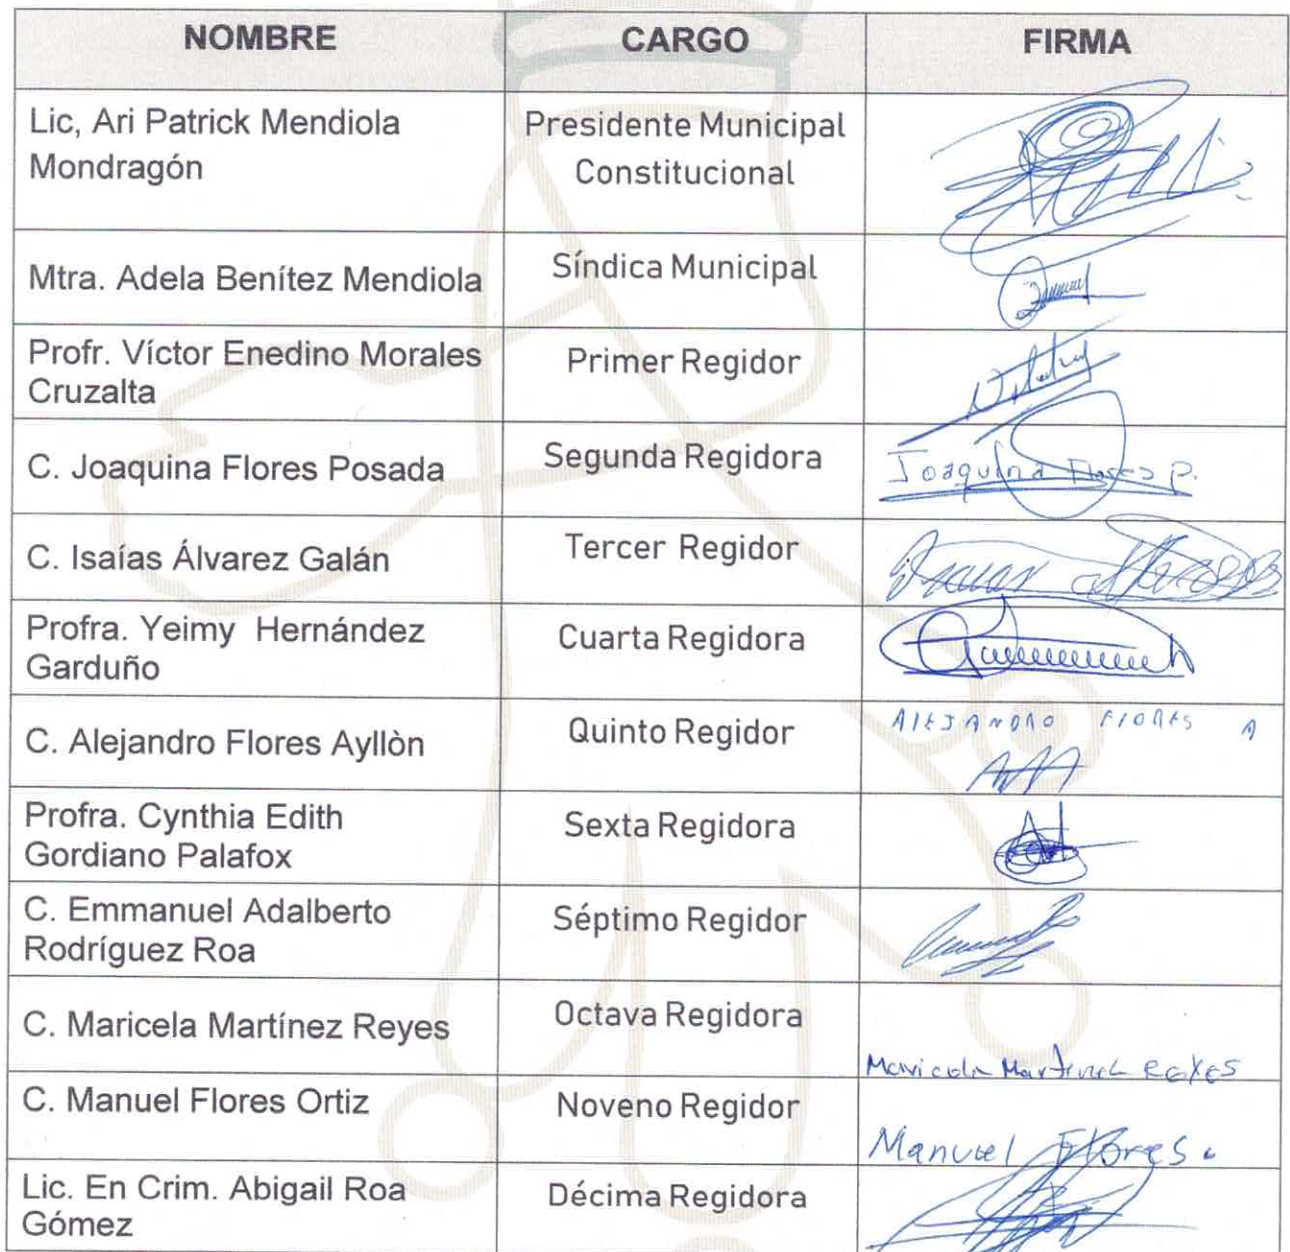 NOMBRE CARGO FIRMA
Lic, Ari Patrick Mendiola
Mondragón
Presidente Municipal
Constitucional
Mtra. Adela Benítez Mendiola
Síndica Municipal
Profr. Víctor Enedino Morales
Cruzalta
Primer Regidor
C. Joaquina Flores Posada
Segunda Regidora
Joaquina Flores P.
C. Isaías Álvarez Galán
Tercer Regidor
Profra. Yeimy Hernández
Garduño
Cuarta Regidora
C. Alejandro Flores Ayllòn
Quinto Regidor
AlEJANDRO FlORES A
Profra. Cynthia Edith
Gordiano Palafox
Sexta Regidora
C. Emmanuel Adalberto
Rodríguez Roa
Séptimo Regidor
C. Maricela Martínez Reyes
Octava Regidora
Maricela Martinez REYES
C. Manuel Flores Ortiz
Noveno Regidor
Manuel Flores.
Lic. En Crim. Abigail Roa
Gómez
Décima Regidora